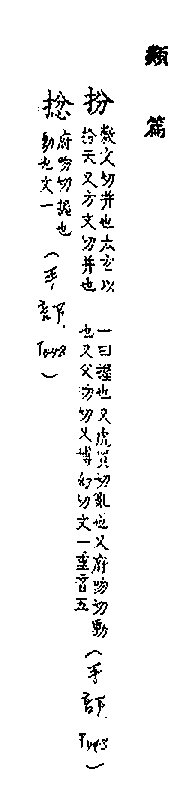 類篇
扮
敷文切并也太玄以
扮天又方文切并也
一曰握也又虎買切亂也又府吻切動
也又父吻切又博幻切文一重音五（手部
府吻切握也
動也文一（手部